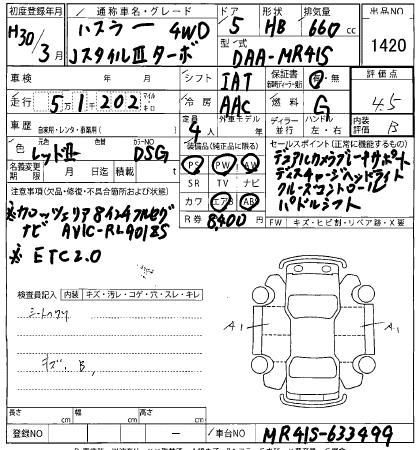 初度登録年月 通称車名・グレード ドア 形状 排気量 出品NO
H30/3月 ハスラー 4WD 5 HB 660cc 1420
JスタイルⅢターボ 型式 DAA-MR41S
車検 年 月 シフト IAT 保証書 有・無 評価点
走行 51,202 マイル キロ 冷房 AAC 燃料 G 4.5
車歴 自家用・レンタ・事業用( ) 定員 4人 外車年式 年 ディーラー 並行 ハンドル 左・右 内装 B
色 レッドⅡ 色替 カラーNO DSG 装備品(純正品に限る) セールスポイント(正常に機能するもの)
名義変更期限 月 日 積載 t PS PW AW デュアルカメラブレーキサポート
注意事項(欠品・修復・不具合箇所および現状) SR TV ナビ ディスチャージヘッドライト
※カロッツェリア8インチフルセグ カワ エアB ABS クルーズコントロール
ナビ AVIC-RL901ZS R券 8,400 パドルシフト
※ETC2.0 FW キズ・ヒビ割・リペア跡・X要
検査員記入 内装 キズ・汚レ・コゲ・穴・スレ・キレ
シートスレ
キズ・B.
A1 A1
長さ cm 幅 cm 高さ cm
登録NO ー 車台NO MR41S-633499